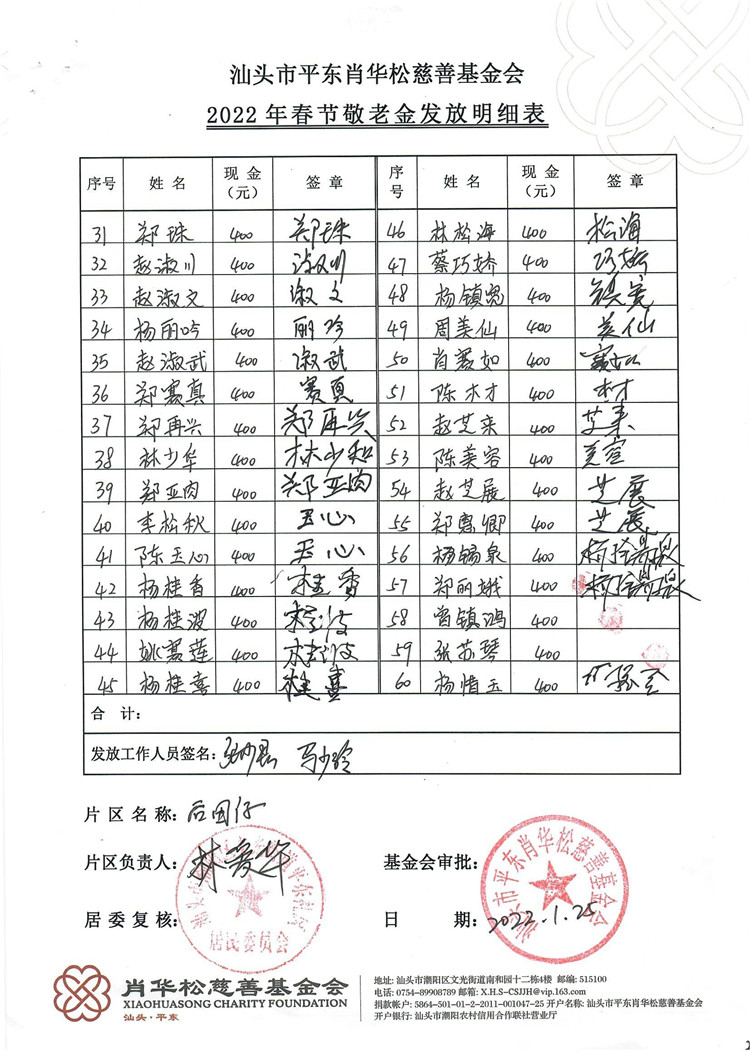 汕头市平东肖华松慈善基金会
2022年春节敬老金发放明细表
序号 姓名 现金（元） 签章 序号 姓名 现金（元） 签章
31 郑珠 400 郑珠 46 林松海 400 松海
32 赵淑川 400 淑川 47 蔡巧娇 400 巧娇
33 赵淑文 400 淑文 48 杨镇宽 400 镇宽
34 杨丽吟 400 丽吟 49 周美仙 400 美仙
35 赵淑武 400 淑武 50 肖赛如 400 赛如
36 郑赛真 400 赛真 51 陈木才 400 木才
37 郑再兴 400 郑再兴 52 赵芝来 400
38 林少华 400 林少和 53 陈美容 400
39 郑亚肉 400 郑亚肉 54 赵芝展 400 芝展
40 李松秋 400 玉心 55 郑惠卿 400 芝展
41 陈玉心 400 玉心 56 杨锡泉 400
42 杨桂香 400 桂香 57 郑丽娥 400
43 杨桂波 400 桂波 58 曾镇鸿 400
44 姚赛莲 400 桂波 59 张苏琴 400
45 杨桂喜 400 桂喜 60 杨惜玉 400
合计：
发放工作人员签名： 马少玲
片区名称：后围仔
片区负责人：林爱华
基金会审批：
居委复核：
日期：2022.1.25
居民委员会
汕头市平东肖华松慈善基金会
肖华松慈善基金会
XIAOHUASONG CHARITY FOUNDATION
汕头·平东
地址：汕头市潮阳区文光街道南和园十二栋4楼 邮编：515100
电话：0754-89908789 邮箱：X.H.S-CSJJH@vip.163.com
捐款帐户：5864-501-01-2-2011-001047-25 开户名称：汕头市平东肖华松慈善基金会
开户银行：汕头市潮阳农村信用合作联社营业厅